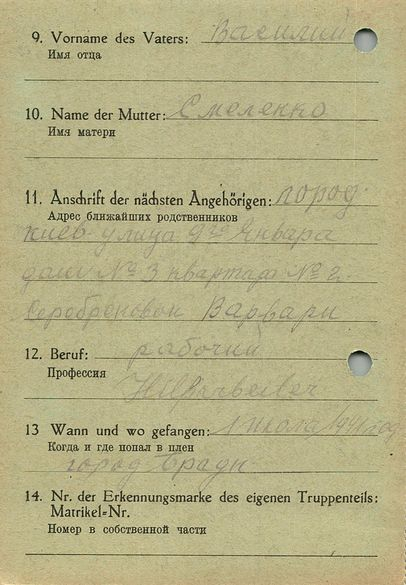 9. Vorname des Vaters: Василий
Имя отца
10. Name der Mutter: Емеленко
Имя матери
11. Anschrift der nächsten Angehörigen: город
Адрес ближайших родственников
Киев улица 9го Января
дом № 3 квартал № 2
Варвари
12. Beruf: рабочий
Профессия
Hilfsarbeiter
13 Wann und wo gefangen: 1941 год
Когда и где попал в плен
город
14. Nr. der Erkennungsmarke des eigenen Truppenteils:
Matrikel-Nr.
Номер в собственной части